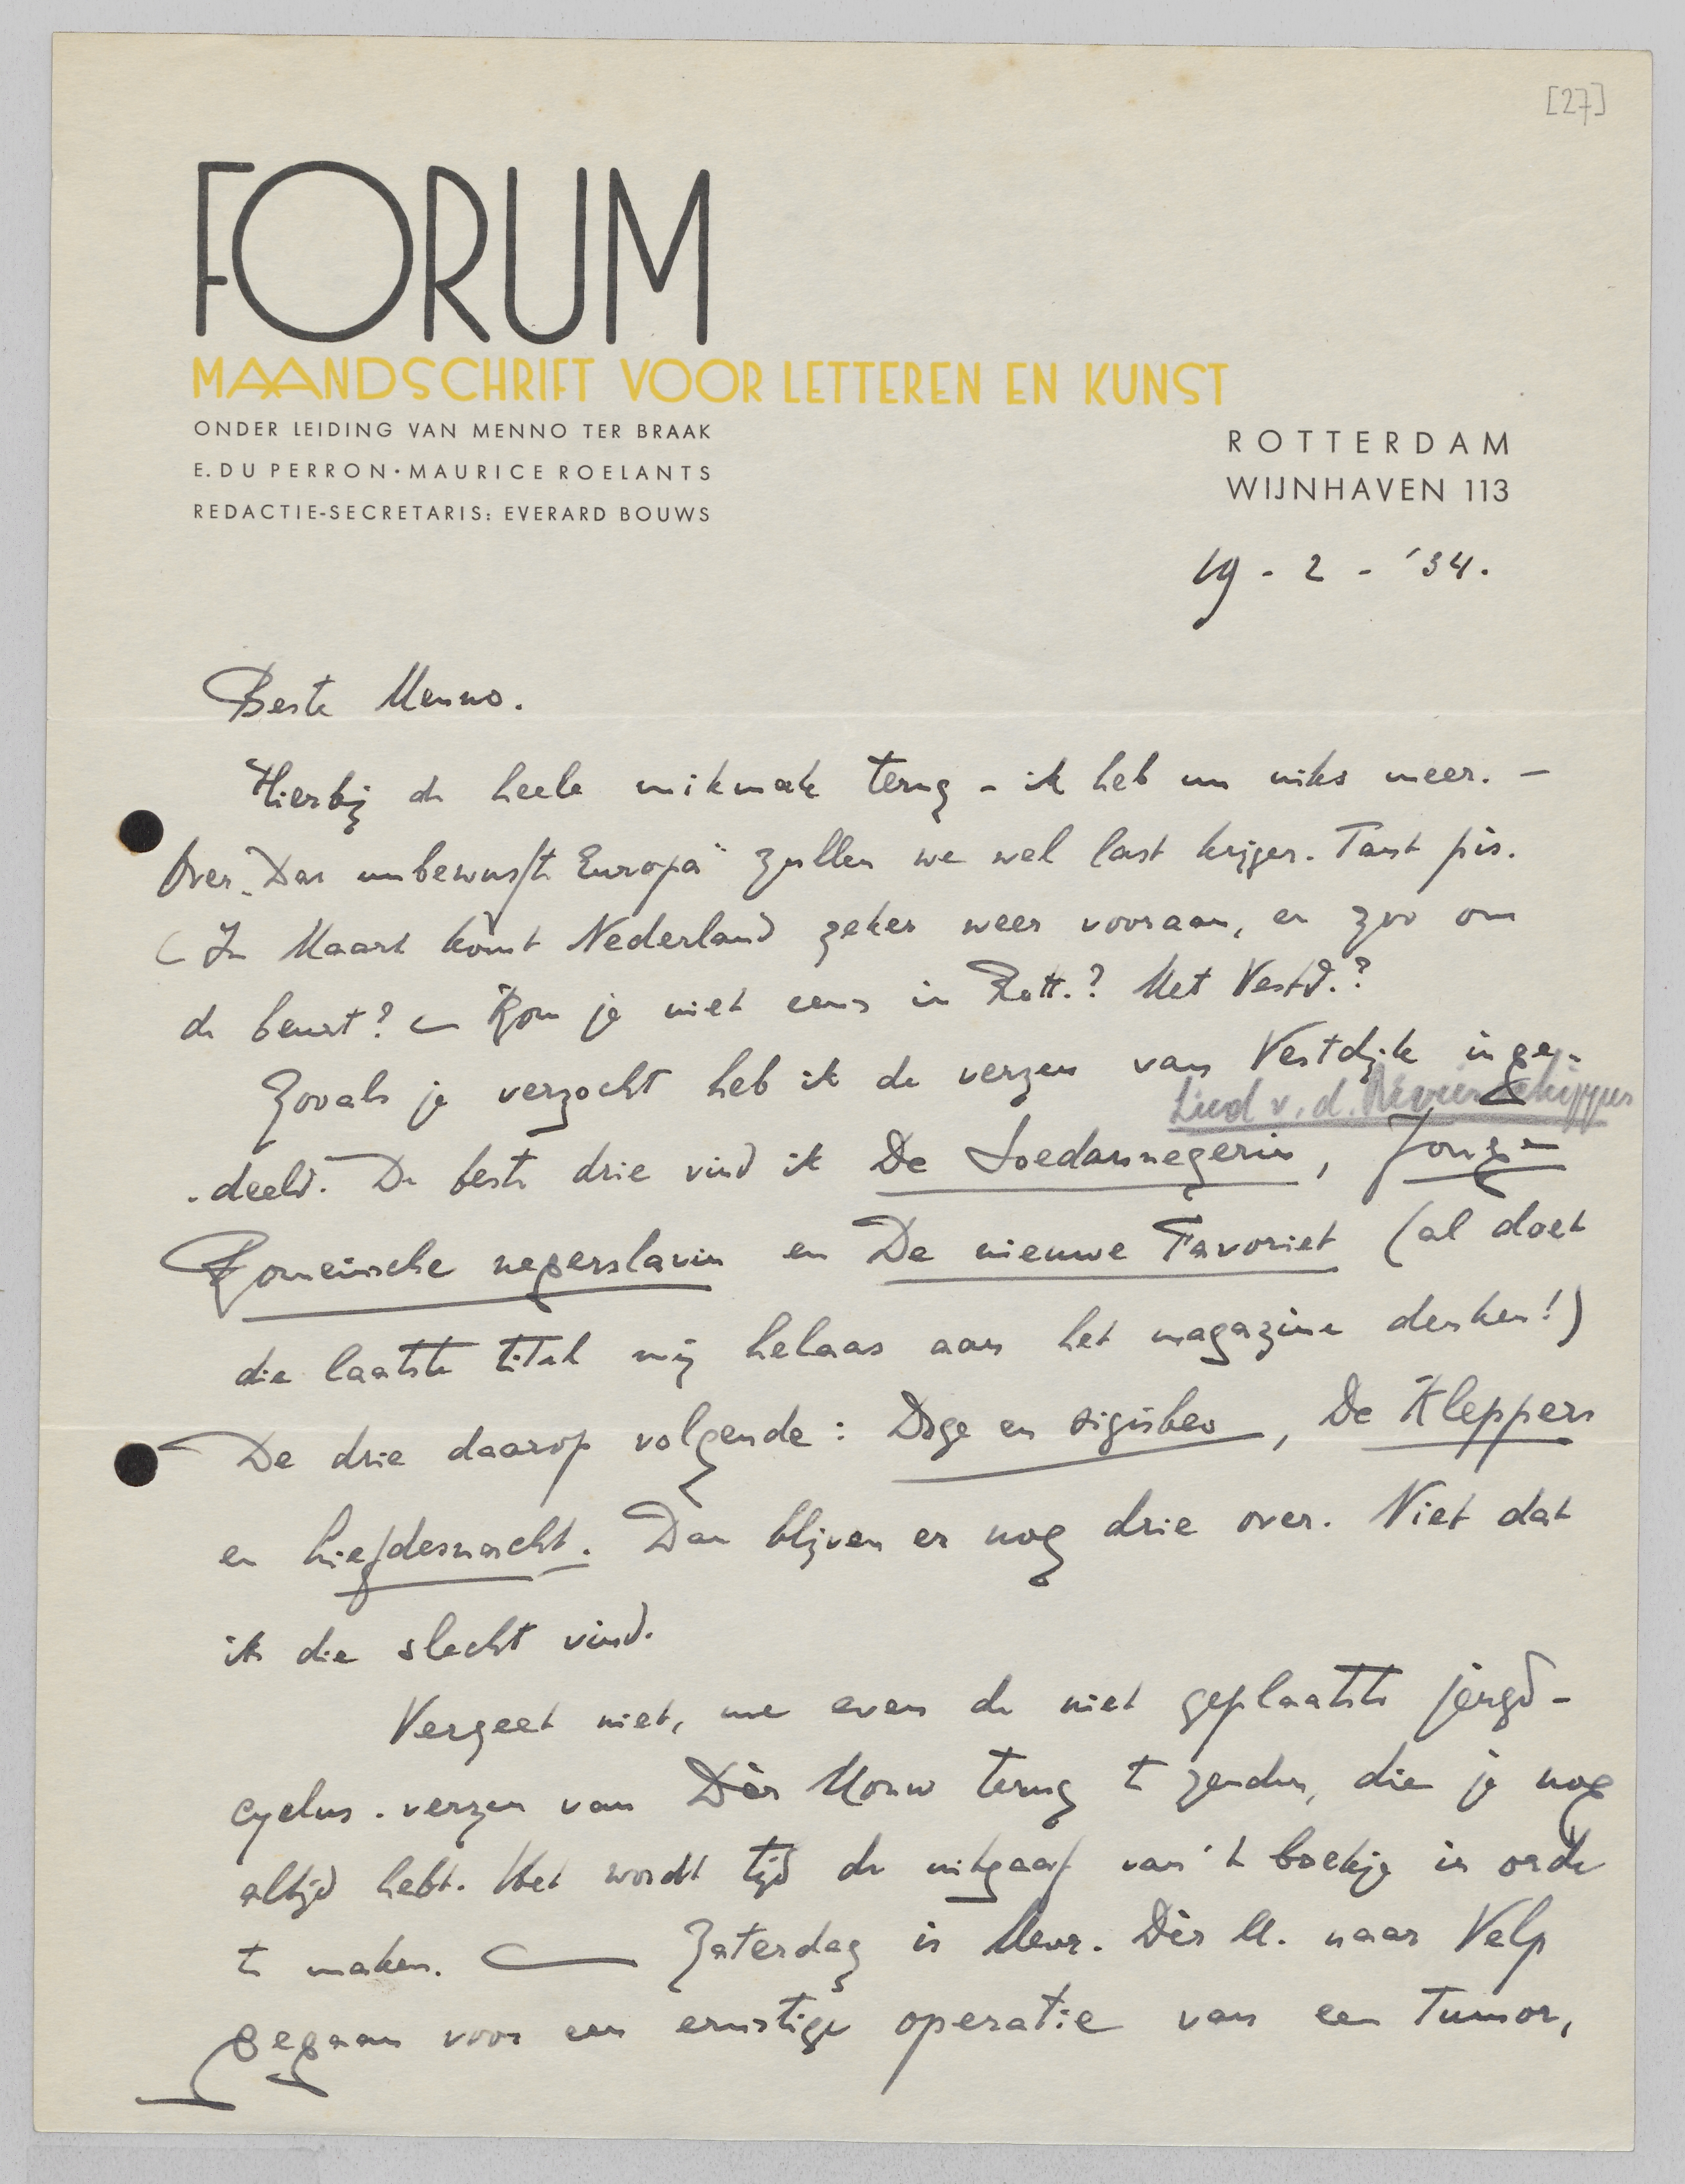 [27]
FORUM
MAANDSCHRIFT VOOR LETTEREN EN KUNST
ONDER LEIDING VAN MENNO TER BRAAK
E. DU PERRON · MAURICE ROELANTS
REDACTIE-SECRETARIS: EVERARD BOUWS
ROTTERDAM
WIJNHAVEN 113
19 - 2 - '34.
Beste Menno.
Hierbij de heele mikmak terug - ik heb nu niks meer. —
Over „Das unbewusste Europa" zullen we wel last krijgen. Tant pis.
(In Maart komt Nederland zeker weer vooraan, en zoo om
de beurt? — Kom je niet eens in Rott.? Met Vestd.?
Zooals je verzocht heb ik de verzen van Vestdijk inge-
Lied v. d. Rivierschipper
-deeld. De beste drie vind ik De Soedannegerin, Jonge
Romeinsche negerslavin en De nieuwe Favoriet (al doet
die laatste titel mij helaas aan het magazine denken!)
De drie daarop volgende: Doge en sigisbeo, De Kleppers
en Liefdesnacht. Dan blijven er nog drie over. Niet dat
ik die slecht vind.
Vergeet niet, me even de niet geplaatste jeugd-
cyclus-verzen van Dèr Mouw terug te zenden, die je nog
altijd hebt. Het wordt tijd de uitgaaf van 't boekje in orde
te maken. — Zaterdag is Mevr. Dèr M. naar Velp
gegaan voor een ernstige operatie van een tumor,